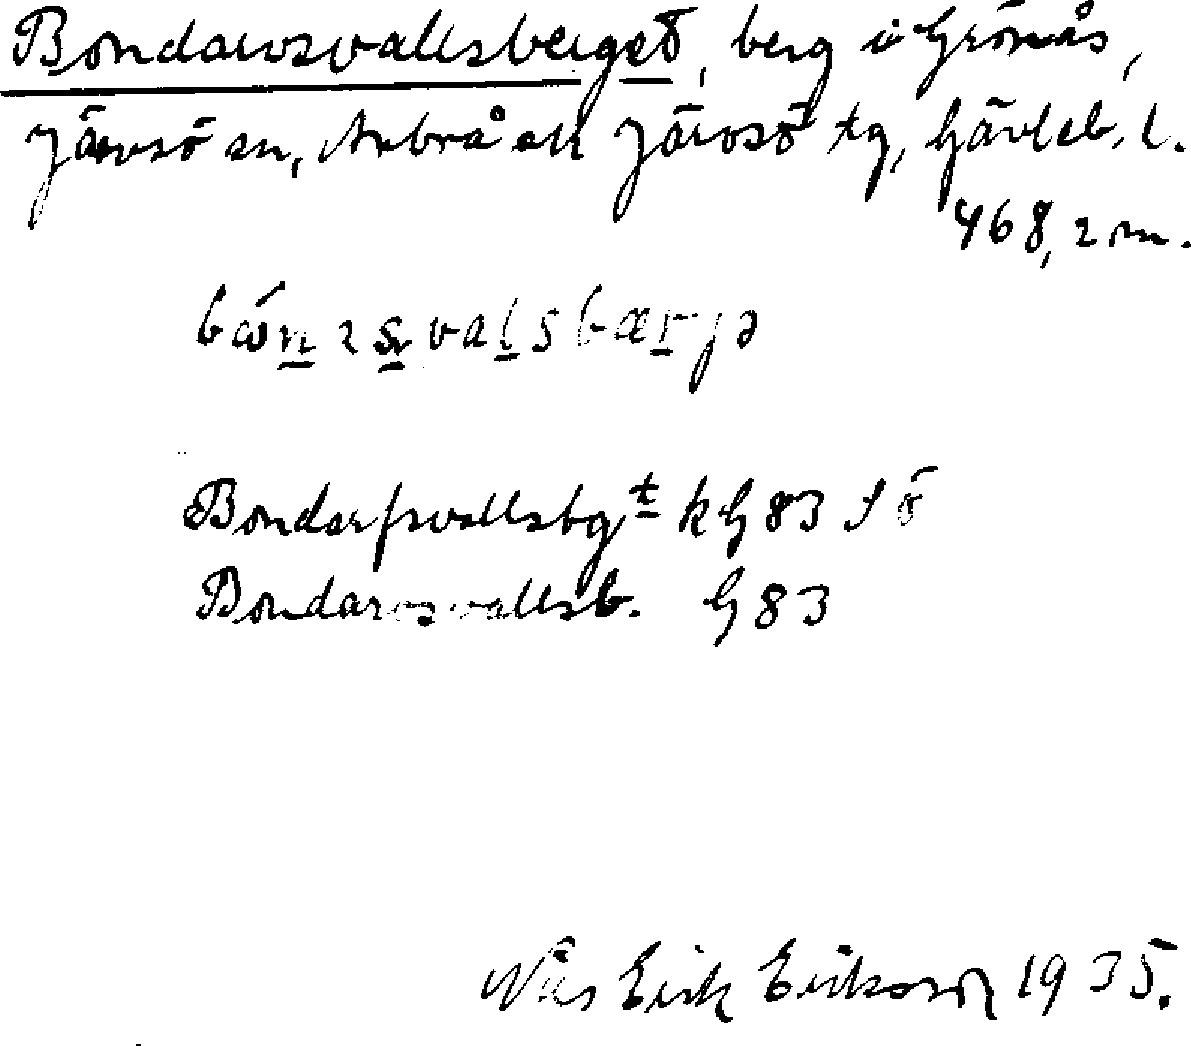 Bondarvsvallsberget, berg i Grönås,
Järvsö sn, Arbrå och Järvsö tg, Gävleb. l.
468,2 m.
Bondarfsvallsbgt k G 83 SÖ
Bondarvsvallsb. G 83
Nils Erik Eriksson 1935.